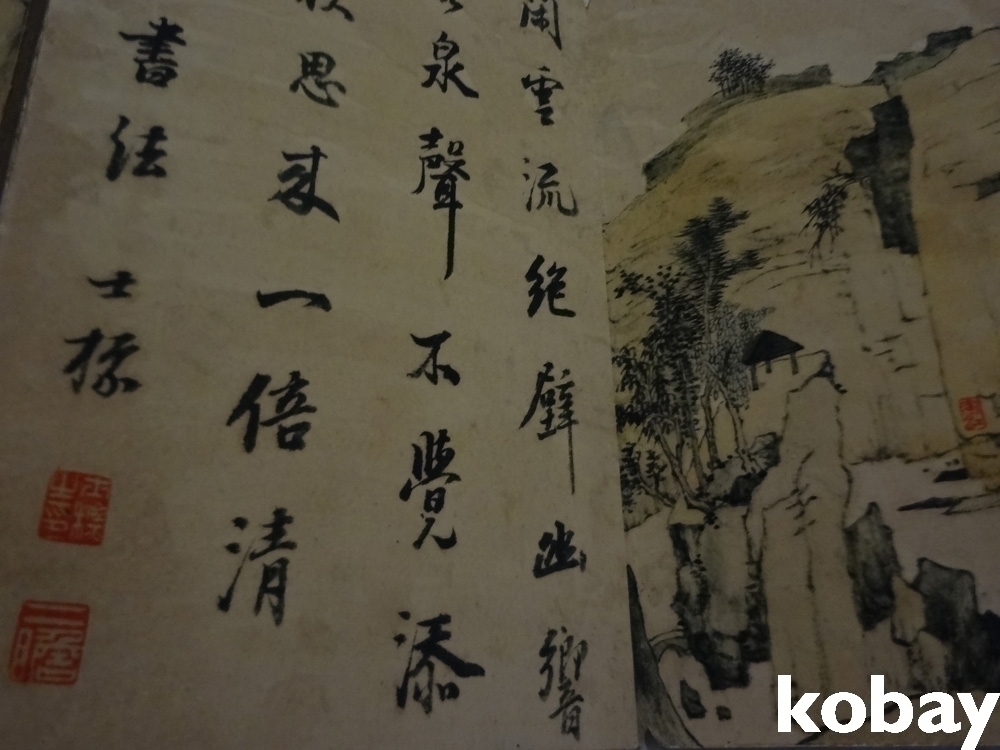 雲流絶壁幽響
泉聲不覺添
思來一倍清
書法 士標
二瞻
kobay